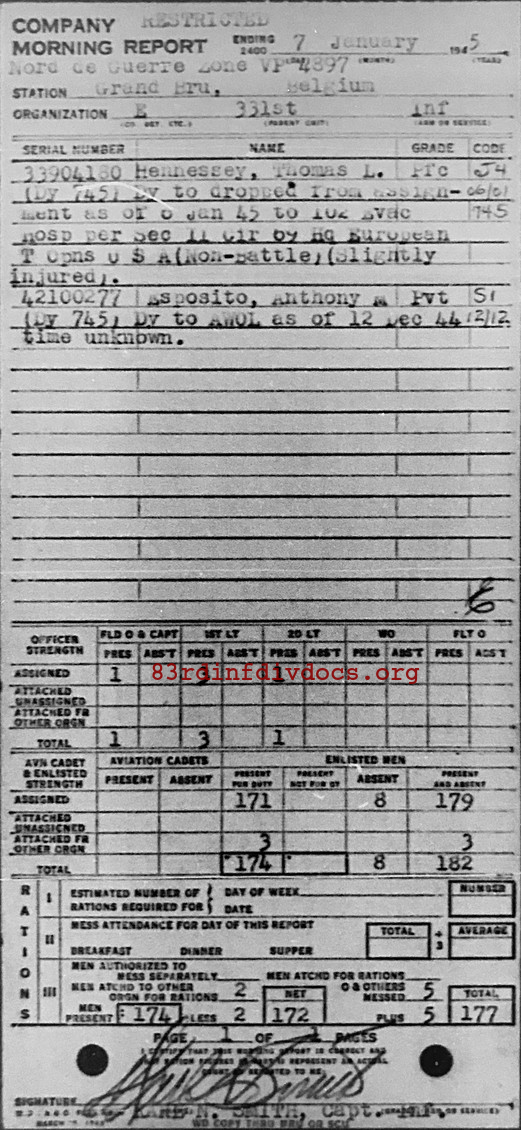 RESTRICTED
COMPANY
MORNING REPORT ENDING 2400 7 January 1945
Nord de Guerre Zone VP 4897
STATION Grand Bru, Belgium
ORGANIZATION E 331st Inf
(CO. DET. ETC.) (PARENT UNIT) (ARM OR SERVICE)
SERIAL NUMBER NAME GRADE CODE
33904180 Hennessey, Thomas L. Pfc J4
(Dy 745) Dy to dropped from assign- 06/01
ment as of 6 Jan 45 to 102 Evac 745
Hosp per Sec II Cir by Hq European
T Opns U S A(Non-Battle)(Slightly
injured).
42100277 Esposito, Anthony M Pvt S1
(Dy 745) Dy to AWOL as of 12 Dec 44 12/12
time unknown.
OFFICER STRENGTH FLD O & CAPT 1ST LT 2D LT WO FLT O
PRES ABS'T PRES ABS'T PRES ABS'T PRES ABS'T PRES ABS'T
ASSIGNED 1 3 1
83rdinfdivdocs.org
ATTACHED UNASSIGNED
ATTACHED FR OTHER ORGN
TOTAL 1 3 1
AVN CADET & ENLISTED STRENGTH AVIATION CADETS ENLISTED MEN
PRESENT ABSENT PRESENT FOR DUTY PRESENT NOT FOR DY ABSENT PRESENT AND ABSENT
ASSIGNED 171 8 179
ATTACHED UNASSIGNED
ATTACHED FR OTHER ORGN 3 3
TOTAL 174 8 182
RATIONS
I ESTIMATED NUMBER OF RATIONS REQUIRED FOR DAY OF WEEK DATE NUMBER
II MESS ATTENDANCE FOR DAY OF THIS REPORT TOTAL ÷ 3 AVERAGE
BREAKFAST DINNER SUPPER
III MEN AUTHORIZED TO MESS SEPARATELY MEN ATCHD FOR RATIONS
MEN ATCHD TO OTHER ORGN FOR RATIONS 2 NET O & OTHERS MESSED 5 TOTAL
MEN PRESENT 174 LESS 2 172 PLUS 5 177
PAGE 1 OF 1 PAGES
I CERTIFY THAT THIS MORNING REPORT IS CORRECT AND
SIGNATURE
N. SMITH, Capt. Inf.